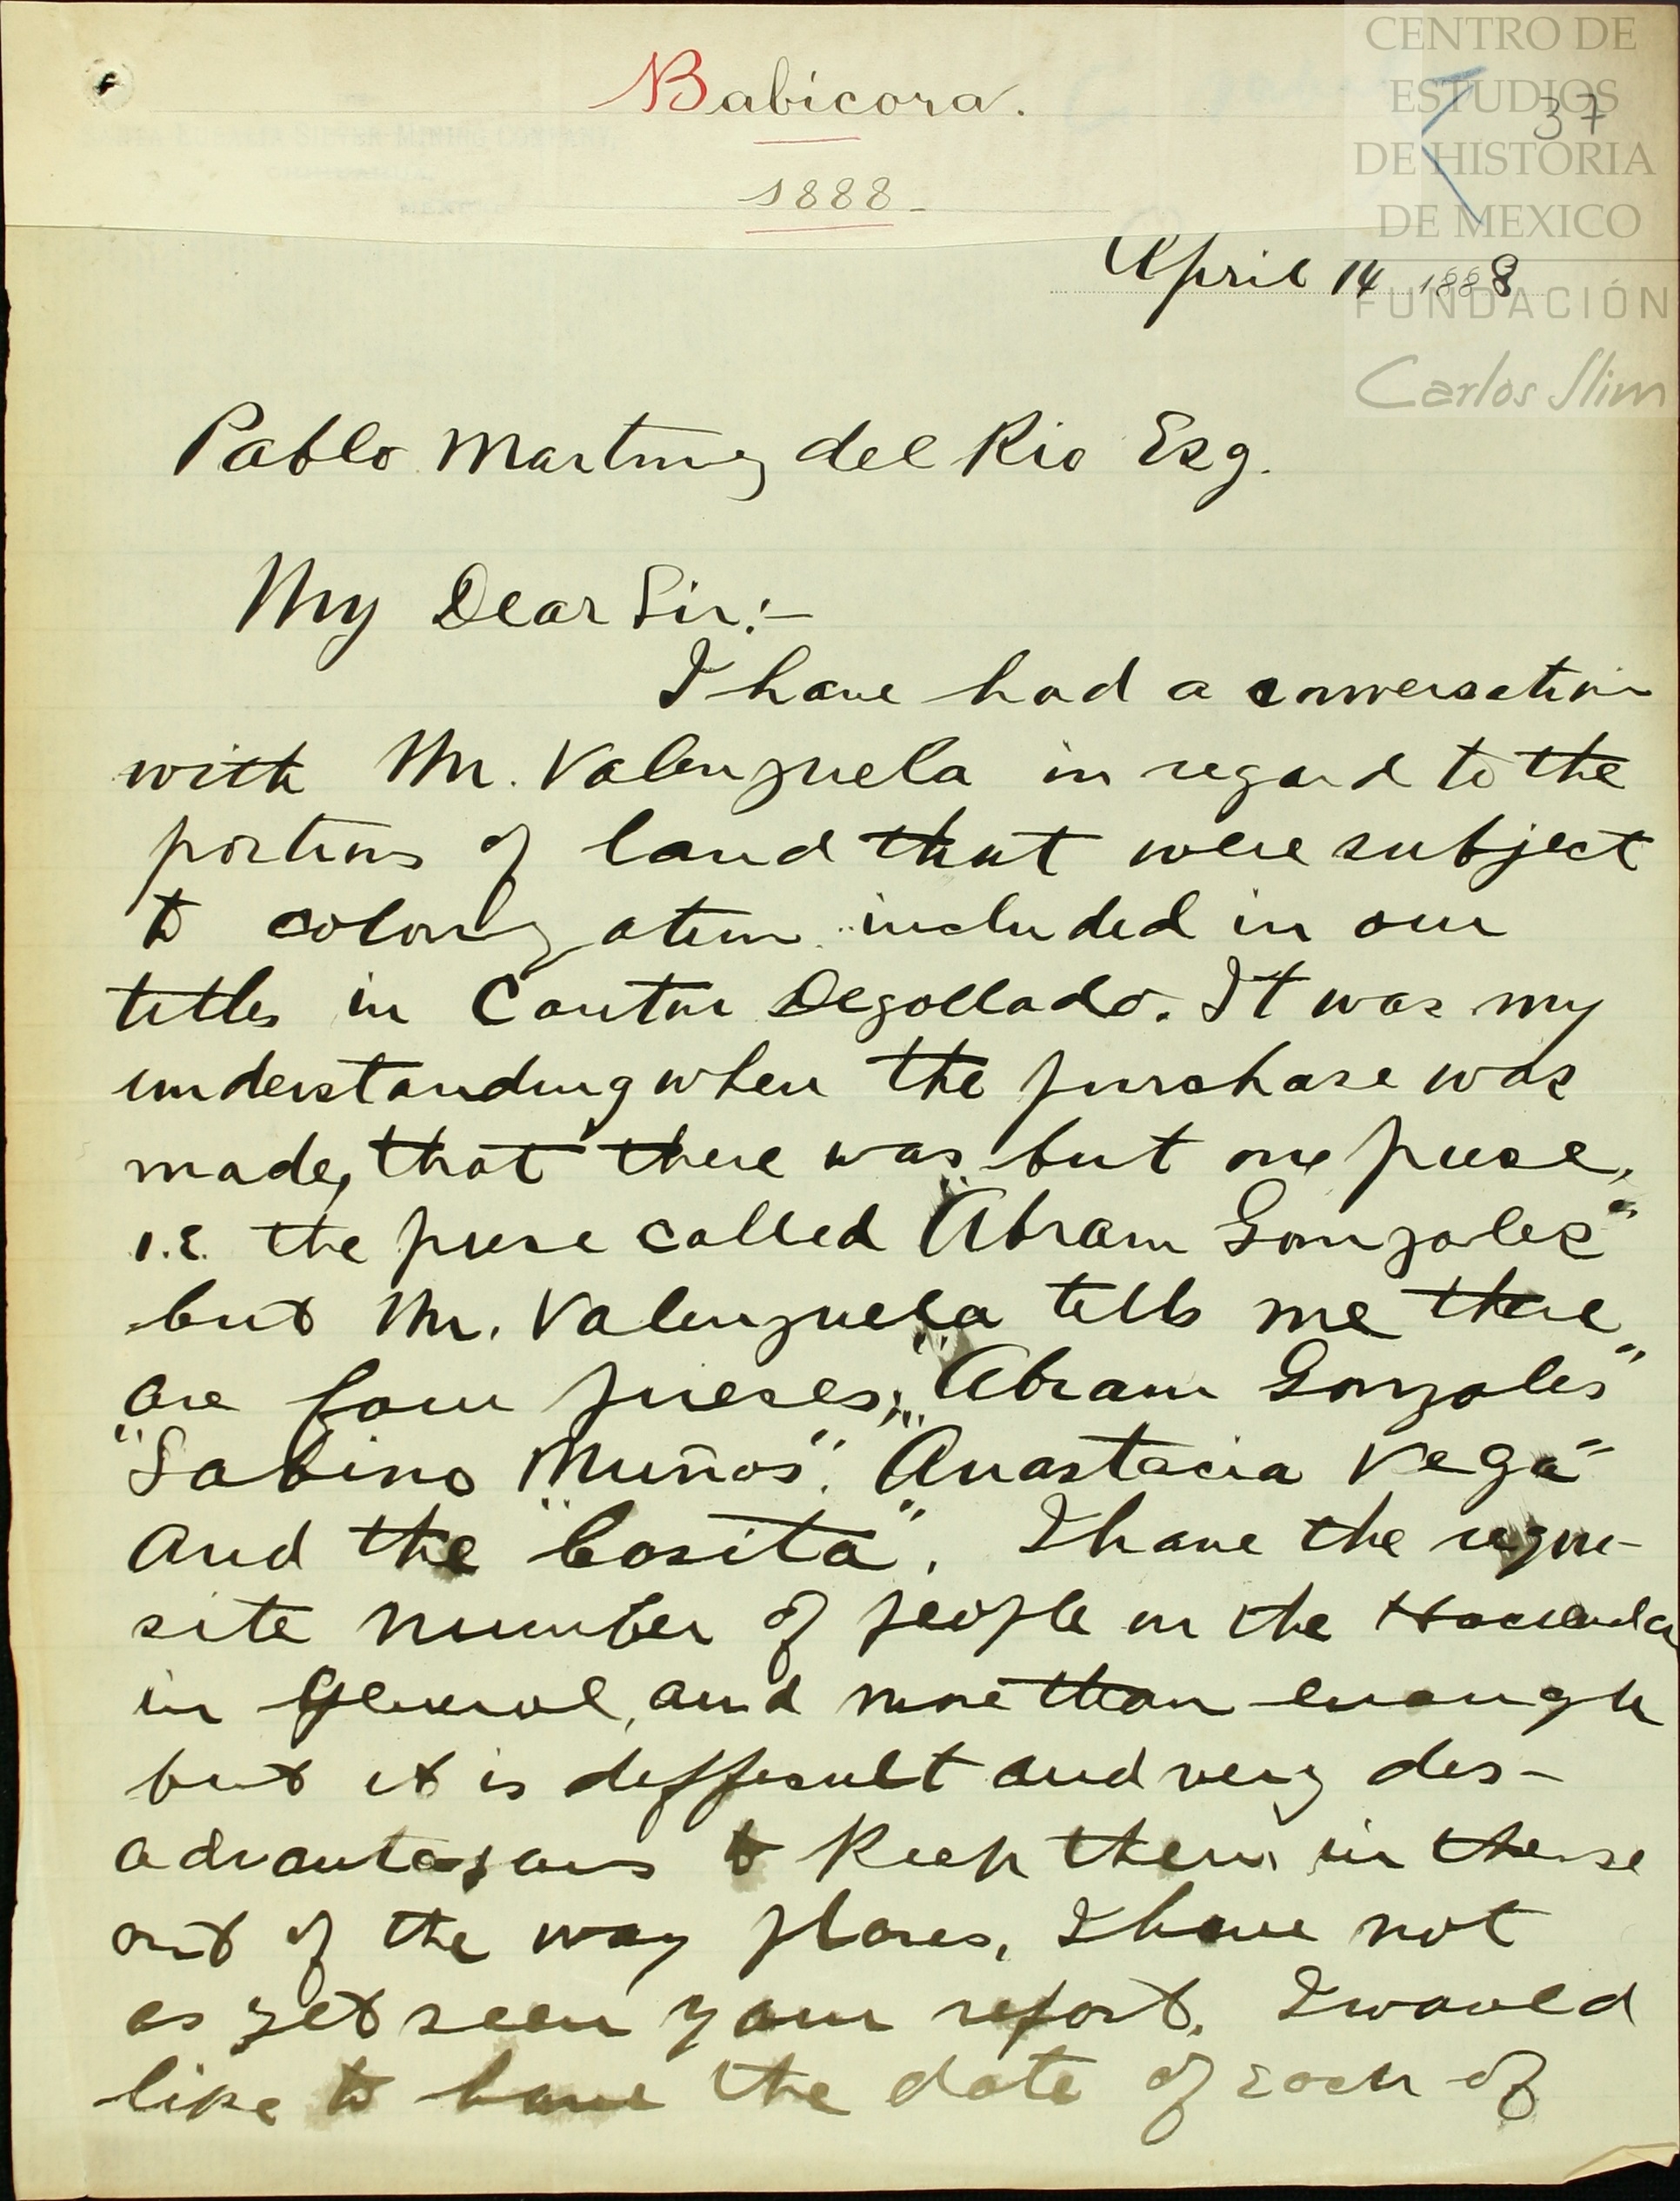 Babicora.
1888-
37
CENTRO DE
ESTUDIOS
DE HISTORIA
DE MEXICO
FUNDACIÓN
Carlos Slim
April 14 1888
Pablo Martinez del Rio Esq.
My Dear Sir:-
I have had a conversation
with Mr. Valenzuela in regard to the
portions of land that were subject
to colonization included in our
titles in Canton Degollado. It was my
understanding when the purchase was
made, that there was but one piese,
i.e. the piese called "Abram Gonzales"
but Mr. Valenzuela tells me there
are four pieses; "Abram Gonzales"
"Sabino Muños". "Anastacia Vega"
and the "Cosita". I have the requi-
site number of people on the Hacienda
in General, and more than enough
but it is difficult and very dis-
advantagous to keep them in these
out of the way places, I have not
as yet seen your report. I would
like to have the date of each of